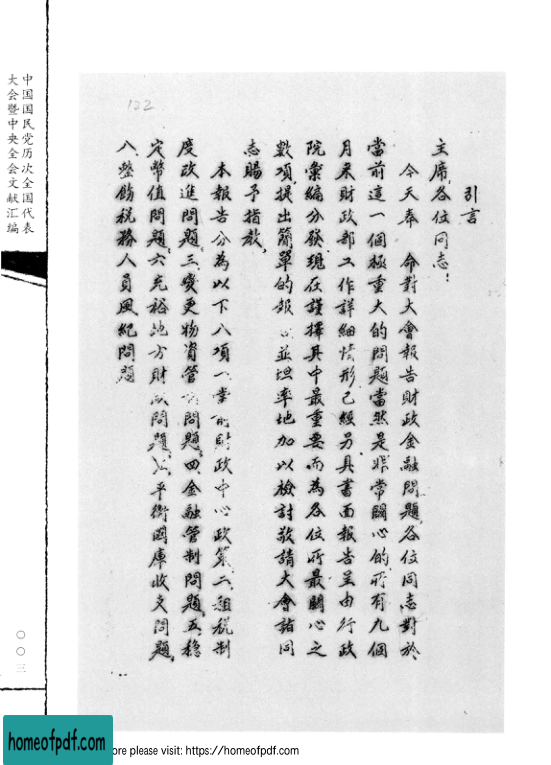 中国国民党历次全国代表
大会暨中央全会文献汇编
〇〇三
122
引言
主席,各位同志:
今天奉 命對大會報告財政金融問題,各位同志對於
當前這一個極重大的問題當然是非常關心的,所有九個
月來財政部工作詳細情形已經另具書面報告呈由行政
院彙編分發,現在謹擇其中最重要而為各位所最關心之
數項,提出簡單的報 並坦率地加以檢討敬請大會諸同
志賜予指教,
本報告分為以下八項一當前財政中心政策,二,租稅制
度改進問題,三,變更物資管 問題,四,金融管制問題,五,穩
定幣值問題,六充裕地方財政問題, 平衡國庫收支問題,
八,整飭稅務人員風紀問題
homeofpdf.com
ore please visit: https://homeofpdf.com